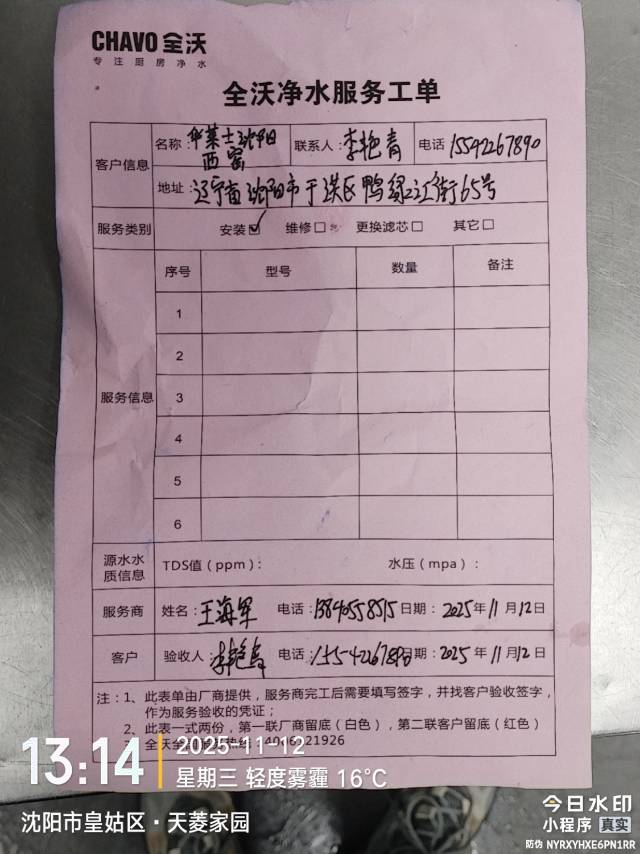 CHAVO 全沃
专注厨房净水
全沃净水服务工单
客户信息
名称：华莱士沈阳日西窑
联系人：李艳青
电话 15542267890
地址：辽宁省沈阳市于洪区鸭绿江街65号
服务类别 安装☑ 维修□ 更换滤芯□ 其它□
服务信息
序号 型号 数量 备注
1
2
3
4
5
6
源水水质信息 TDS值（ppm）： 水压（mpa）：
服务商 姓名：王海军 电话：13840558515 日期：2025年11月12日
客户 验收人：李艳青 电话：15542267890 日期：2025年11月12日
注：1、此表单由厂商提供，服务商完工后需要填写签字，并找客户验收签字，
作为服务验收的凭证；
2、此表一式两份，第一联厂商留底（白色），第二联客户留底（红色）
13:14
2025-11-12
星期三 轻度雾霾 16℃
沈阳市皇姑区·天菱家园
今日水印
小程序 真实
防伪 NYRXYHXE6PN1RR